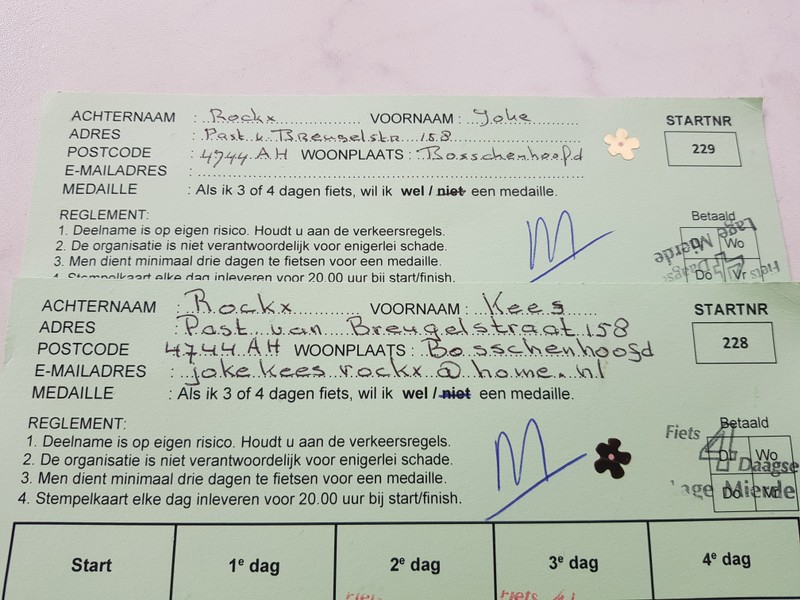 ACHTERNAAM : Rockx VOORNAAM : Joke
ADRES : Past. v. Breugelstr. 158
POSTCODE : 4744 AH WOONPLAATS : Bosschenhoofd
E-MAILADRES :
MEDAILLE : Als ik 3 of 4 dagen fiets, wil ik wel / niet een medaille.
STARTNR
229
REGLEMENT:
1. Deelname is op eigen risico. Houdt u aan de verkeersregels.
2. De organisatie is niet verantwoordelijk voor enigerlei schade.
3. Men dient minimaal drie dagen te fietsen voor een medaille.
4. Stempelkaart elke dag inleveren voor 20.00 uur bij start/finish.
M
Betaald
Wo
Do Vr
Fiets 4 Daagse
Lage Mierde
ACHTERNAAM : Rockx VOORNAAM : Kees
ADRES : Past. van Breugelstraat 158
POSTCODE 4744 AH WOONPLAATS : Bosschenhoofd
E-MAILADRES : joke.kees.rockx@home.nl
MEDAILLE : Als ik 3 of 4 dagen fiets, wil ik wel / niet een medaille.
STARTNR
228
REGLEMENT:
1. Deelname is op eigen risico. Houdt u aan de verkeersregels.
2. De organisatie is niet verantwoordelijk voor enigerlei schade.
3. Men dient minimaal drie dagen te fietsen voor een medaille.
4. Stempelkaart elke dag inleveren voor 20.00 uur bij start/finish.
M
Betaald
Di Wo
Do Vr
Fiets 4 Daagse
Lage Mierde
Start 1e dag 2e dag 3e dag 4e dag